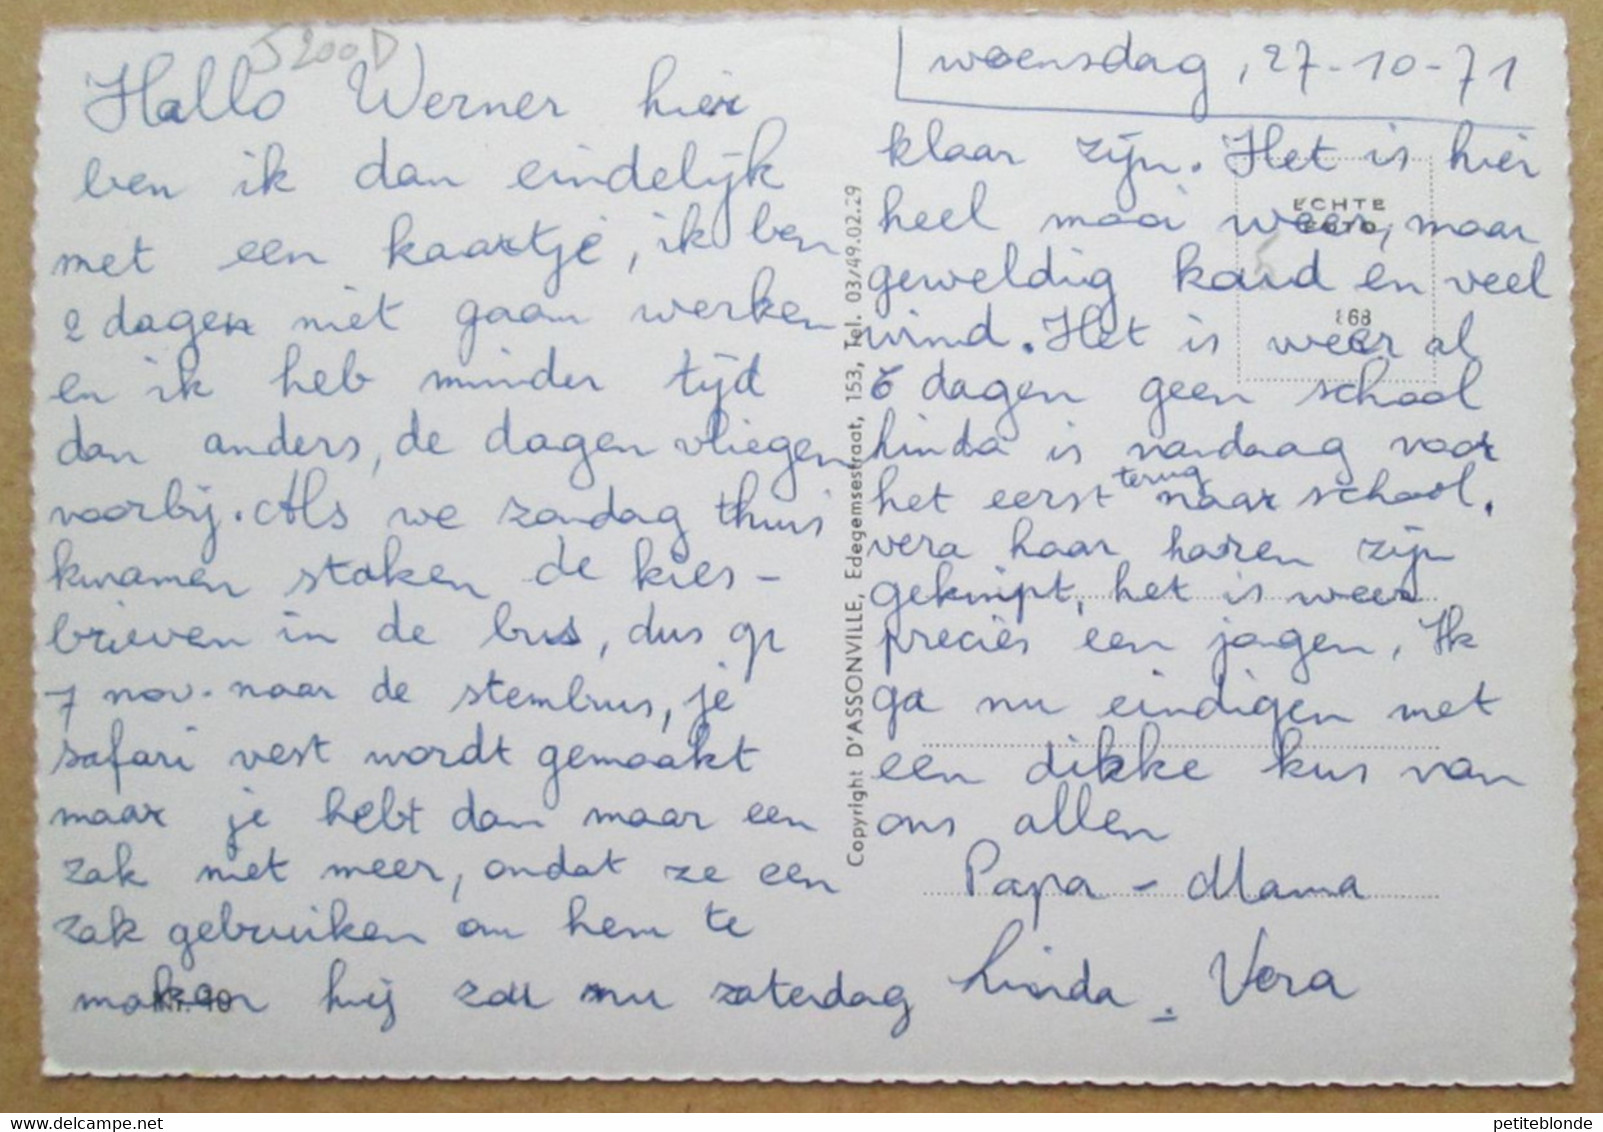 J200D
Hallo Werner hier
ben ik dan eindelijk
met een kaartje, ik ben
2 dagen niet gaan werken
en ik heb minder tijd
dan anders, de dagen vliegen
voorbij. Als we zondag thuis
kwamen staken de kies-
brieven in de bus, dus op
7 nov. naar de stembus, je
safari vest wordt gemaakt
maar je hebt dan maar een
zak niet meer, omdat ze een
zak gebruiken om hem te
maken hij zou nu zaterdag
woensdag, 27-10-71
klaar zijn. Het is hier
heel mooi weer, maar
geweldig koud en veel
wind. Het is weer al
6 dagen geen school
Linda is vandaag voor
het eerst terug naar school.
vera haar haren zijn
geknipt, het is weer
precies een jongen, Ik
ga nu eindigen met
een dikke kus van
ons allen
Papa - Mama
Linda . Vera
ECHTE
FOTO
168
Copyright D'ASSONVILLE, Edegemsestraat, 153, Tel. 03/49.02.29
petiteblonde